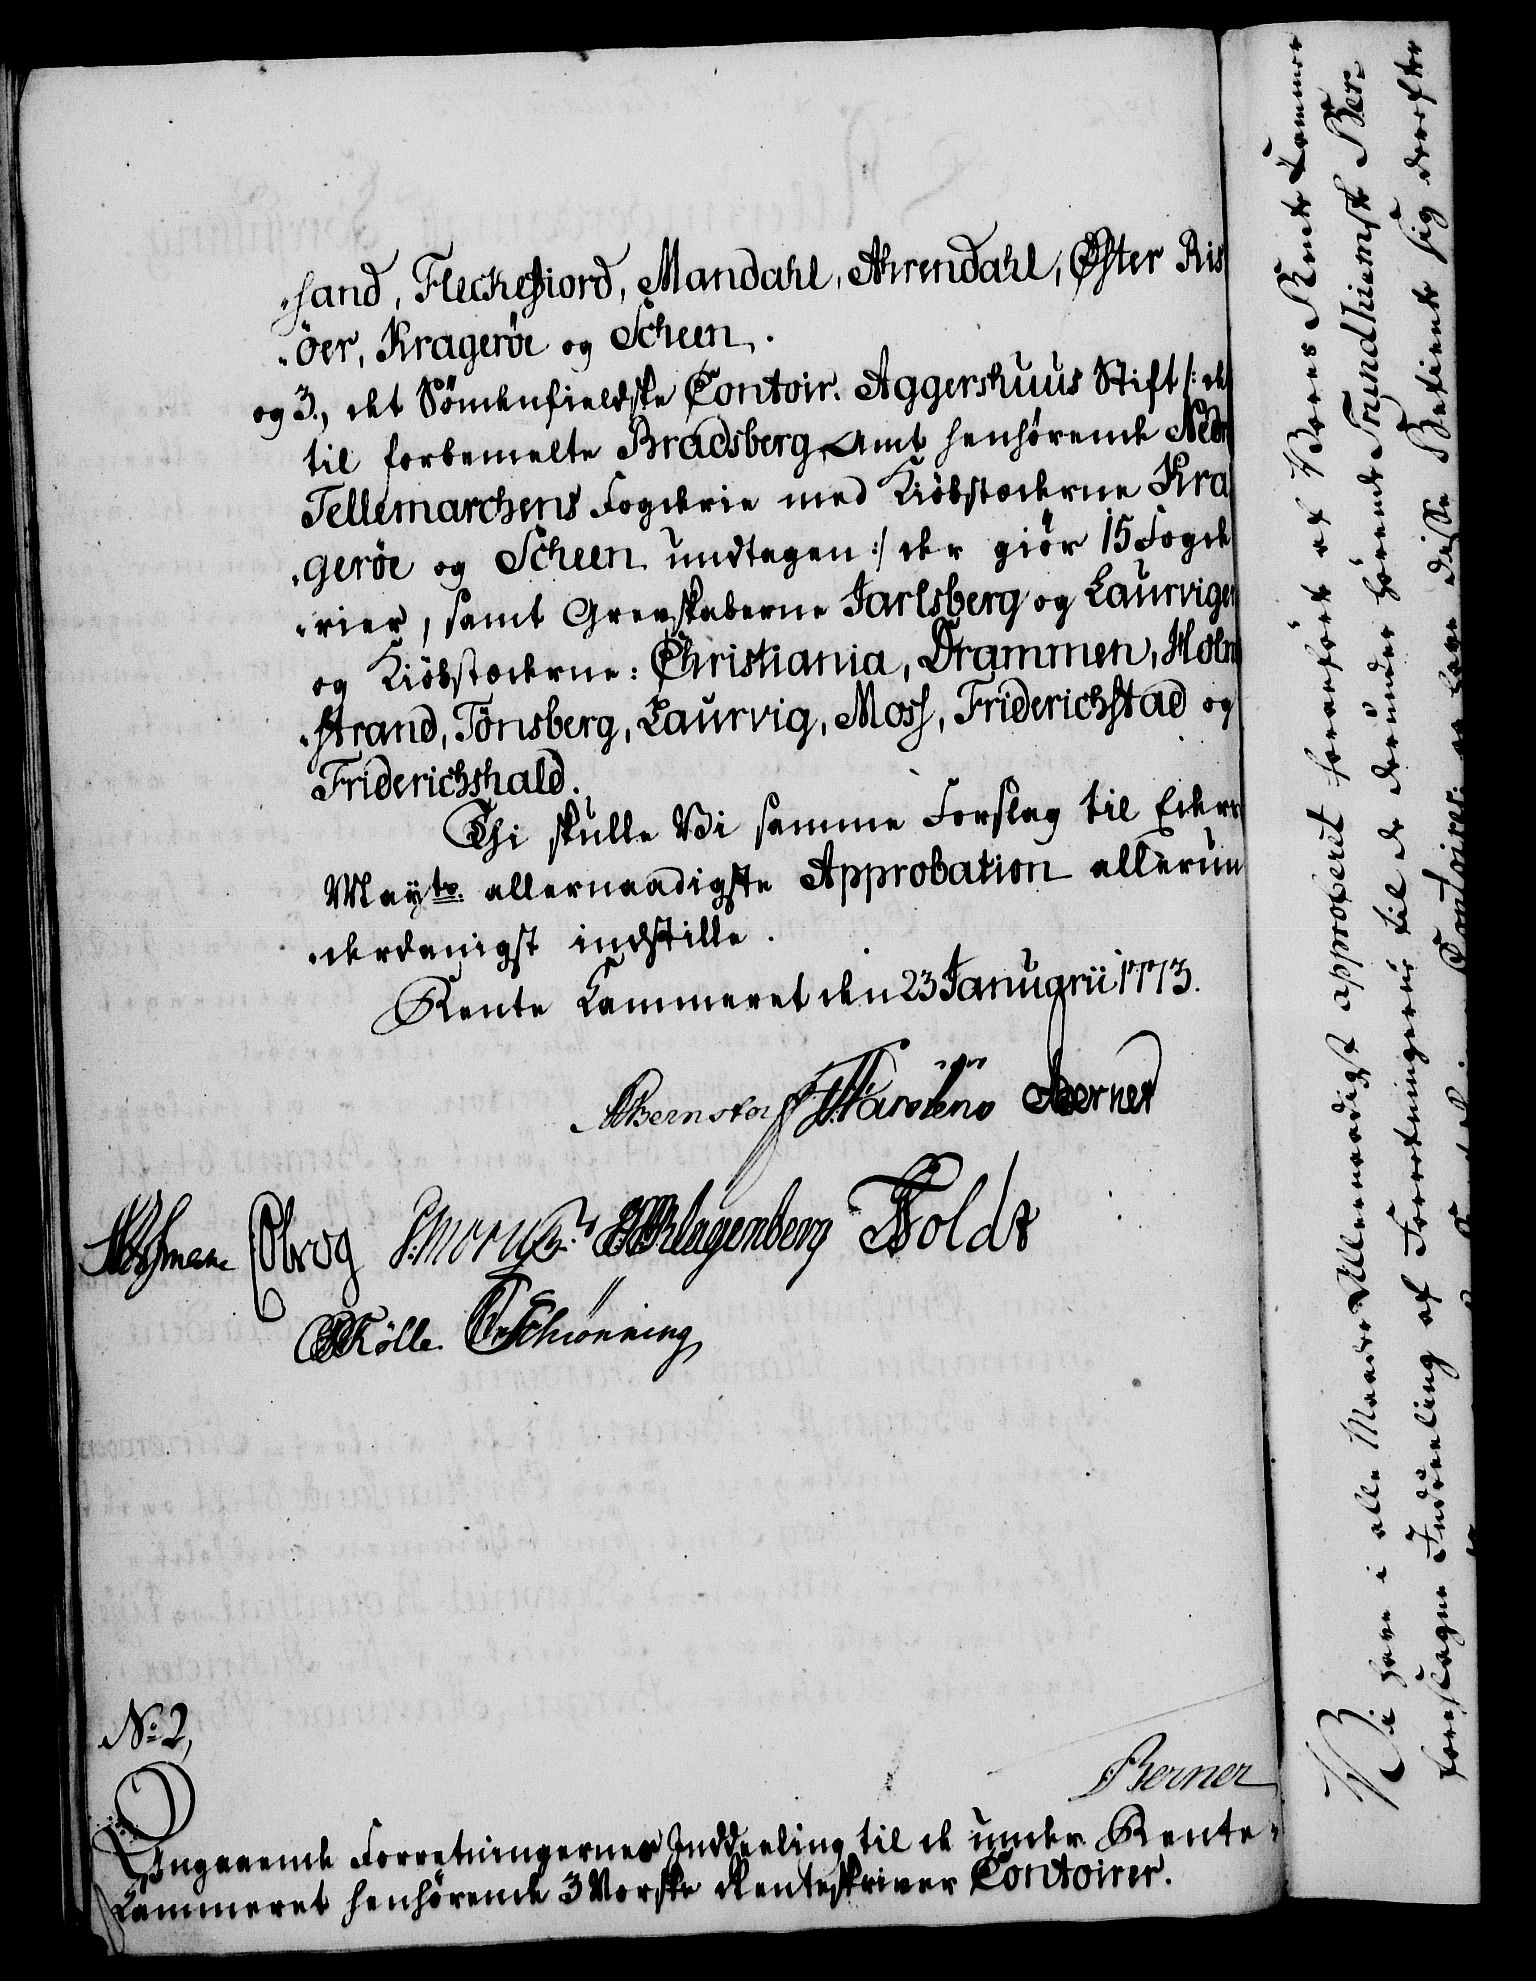 -sand, Fleckefiord, Mandahl, Ahrendahl, Øster Ris
-öer, Krageröe og Scheen.
og 3., det Sömenfieldske Contoir. Aggershuus Stift /: det
til forbemelte Bradsberg Amt henhörende Nedr
Tellemarchens Fogderie med Kiöbstæderne Kra
-geröe og Scheen undtagen :/ der giör 15 Fogde
-rier, samt Grevskaberne Jarlsberg og Laurvigen
og Kiöbstæderne: Christiania, Drammen, Holm
-strand, Tönsberg, Laurvig, Moss, Friderichstad og
Friderichshald.
Thi skulle Vi samme Forslag til Eders
Mayts. allernaadigste Approbation allerun
-derdanigst indstille.
Rente Kammeret den 23 Januarii 1773.
Bernstorff Berner
P. Moruss Klagenberg Holdt
Kölle. Schiönning
No. 2,
Berner
Angaaende Forretningernes Inddeeling til de under Rente-
Kammeret henhörende 3 Norske Renteskriver Contoirer.
Vi have i alle Maader Allernaadigst approberet forestaaet af Vores Rente Kammer
foreslagne Inddeeling af Forretningerne til de derunder hörende Trundhiemsk Ber-
Contoirer, og have disse Betiente sig derefter